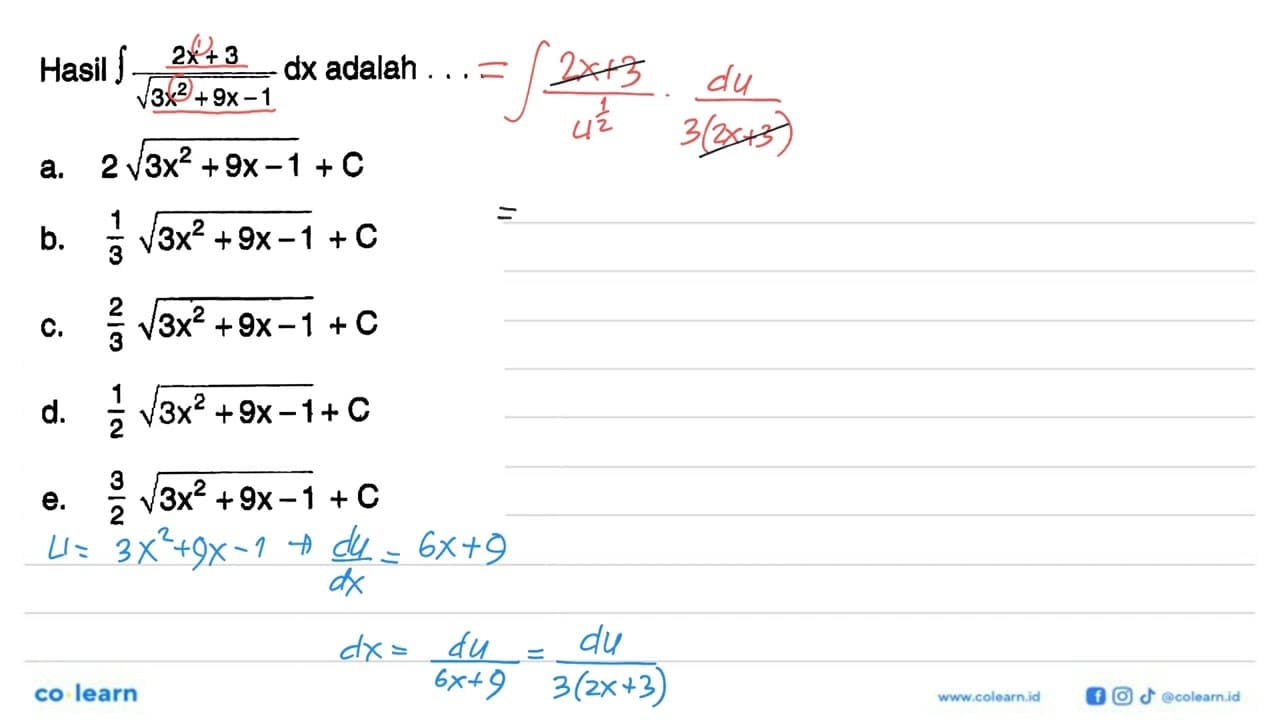 Hasil ∫ (2x + 3)/√(3x² + 9x – 1) dx adalah . . . = ∫ (2x+3)/u^(1/2) · du/(3(2x+3))
(1)
a. 2 √(3x² + 9x – 1) + C
=
b. 1/3 √(3x² + 9x – 1) + C
c. 2/3 √(3x² + 9x – 1) + C
d. 1/2 √(3x² + 9x – 1) + C
e. 3/2 √(3x² + 9x – 1) + C
u = 3x²+9x-1 → du/dx = 6x+9
dx = du/(6x+9) = du/(3(2x+3))
co learn
www.colearn.id
@colearn.id